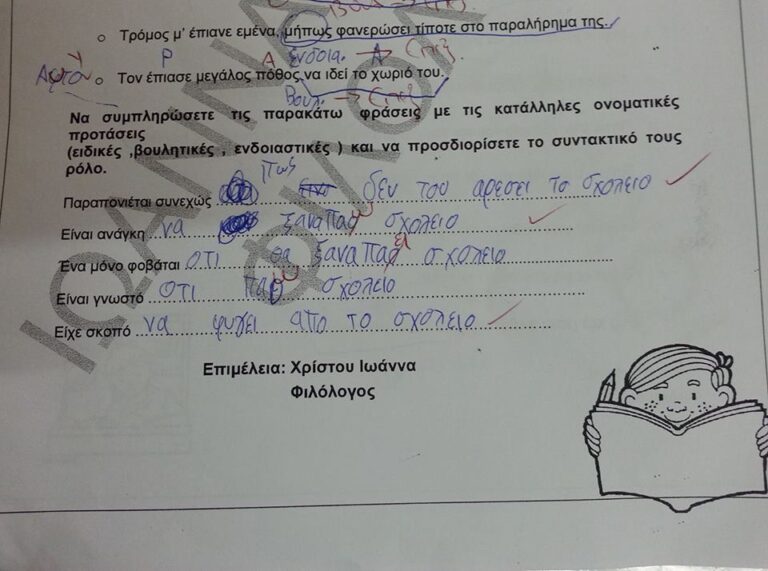 Βουλ. → (Επεξ.
ο Τρόμος μ' έπιανε εμένα, μήπως φανερώσει τίποτε στο παραλήρημα της.
Ρ Α Ενδοια. → Α (Επεξ.
ο Τον έπιασε μεγάλος πόθος να ιδεί το χωριό του.
Βουλ. → (Επεξ.
Να συμπληρώσετε τις παρακάτω φράσεις με τις κατάλληλες ονοματικές
προτάσεις
(ειδικές ,βουλητικές , ενδοιαστικές ) και να προσδιορίσετε το συντακτικό τους
ρόλο.
πως
Παραπονιέται συνεχώς δεν του αρεσει το σχολειο
Είναι ανάγκη να ξαναπαω σχολειο
Ένα μόνο φοβάται οτι θα ξαναπαει σχολειο
Είναι γνωστό οτι παω σχολειο
Είχε σκοπό να φυγει απο το σχολειο
Επιμέλεια: Χρίστου Ιωάννα
Φιλόλογος
ΙΩΑΝΝΑ
ΦΙΛΟΛ